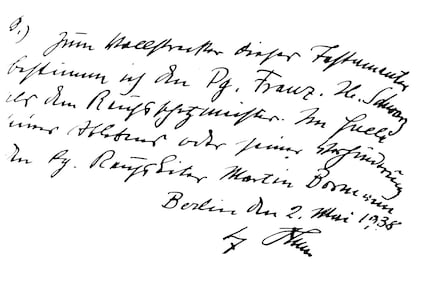 8.) Zum Vollstrecker dieses Testamentes
bestimme ich den Pg. Franz. X. Schwarz
als den Reichsschatzmeister. Im Falle
seines Ablebens oder seiner Verhinderung
den Pg. Reichsleiter Martin Bormann
Berlin den 2. Mai 1938